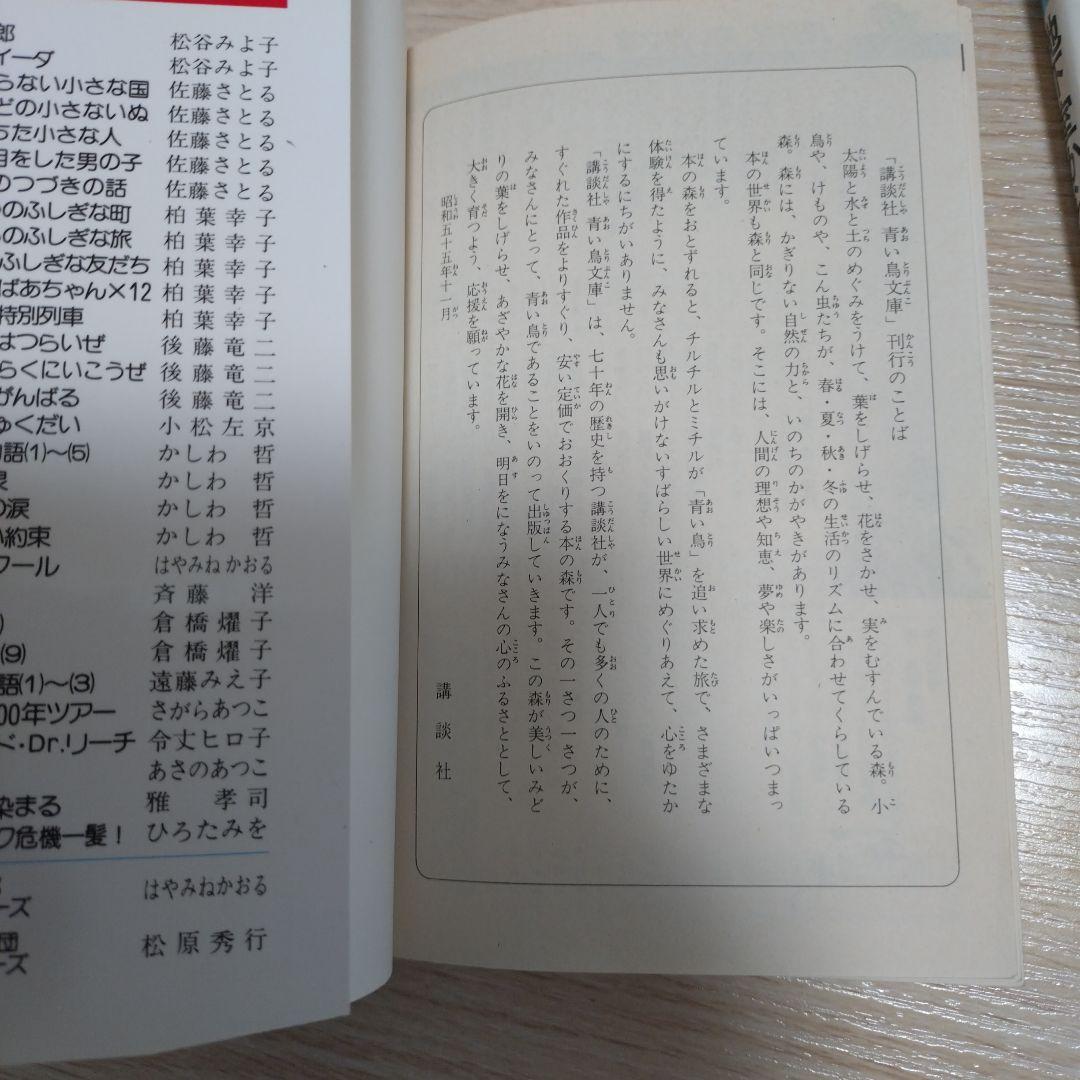 郎 松谷みよ子
イーダ 松谷みよ子
らない小さな国 佐藤さとる
どの小さないぬ 佐藤さとる
ちた小さな人 佐藤さとる
目をした男の子 佐藤さとる
のつづきの話 佐藤さとる
のふしぎな町 柏葉幸子
のふしぎな旅 柏葉幸子
ふしぎな友だち 柏葉幸子
ばあちゃん×12 柏葉幸子
特別列車 柏葉幸子
はつらいぜ 後藤竜二
らくにいこうぜ 後藤竜二
がんばる 後藤竜二
ゅくだい 小松左京
語(1)〜(5) かしわ 哲
かしわ 哲
の涙 かしわ 哲
約束 かしわ 哲
ワール はやみねかおる
斉藤 洋
) 倉橋燿子
(9) 倉橋燿子
語(1)〜(3) 遠藤みえ子
00年ツアー さがらあつこ
ド・Dr.リーチ 令丈ヒロ子
あさのあつこ
染まる 雅 孝司
ク危機一髪! ひろたみを
はやみねかおる
ーズ
団 松原秀行
ーズ
「講談社 青い鳥文庫」刊行のことば
太陽と水と土のめぐみをうけて、葉をしげらせ、花をさかせ、実をむすんでいる森。小
鳥や、けものや、こん虫たちが、春・夏・秋・冬の生活のリズムに合わせてくらしている
森。森には、かぎりない自然の力と、いのちのかがやきがあります。
本の世界も森と同じです。そこには、人間の理想や知恵、夢や楽しさがいっぱいつまっ
ています。
本の森をおとずれると、チルチルとミチルが「青い鳥」を追い求めた旅で、さまざまな
体験を得たように、みなさんも思いがけないすばらしい世界にめぐりあえて、心をゆたか
にするにちがいありません。
「講談社 青い鳥文庫」は、七十年の歴史を持つ講談社が、一人でも多くの人のために、
すぐれた作品をよりすぐり、安い定価でおおくりする本の森です。その一さつ一さつが、
みなさんにとって、青い鳥であることをいのって出版していきます。この森が美しいみど
りの葉をしげらせ、あざやかな花を開き、明日をになうみなさんの心のふるさととして、
大きく育つよう、応援を願っています。
昭和五十五年十一月 講談社